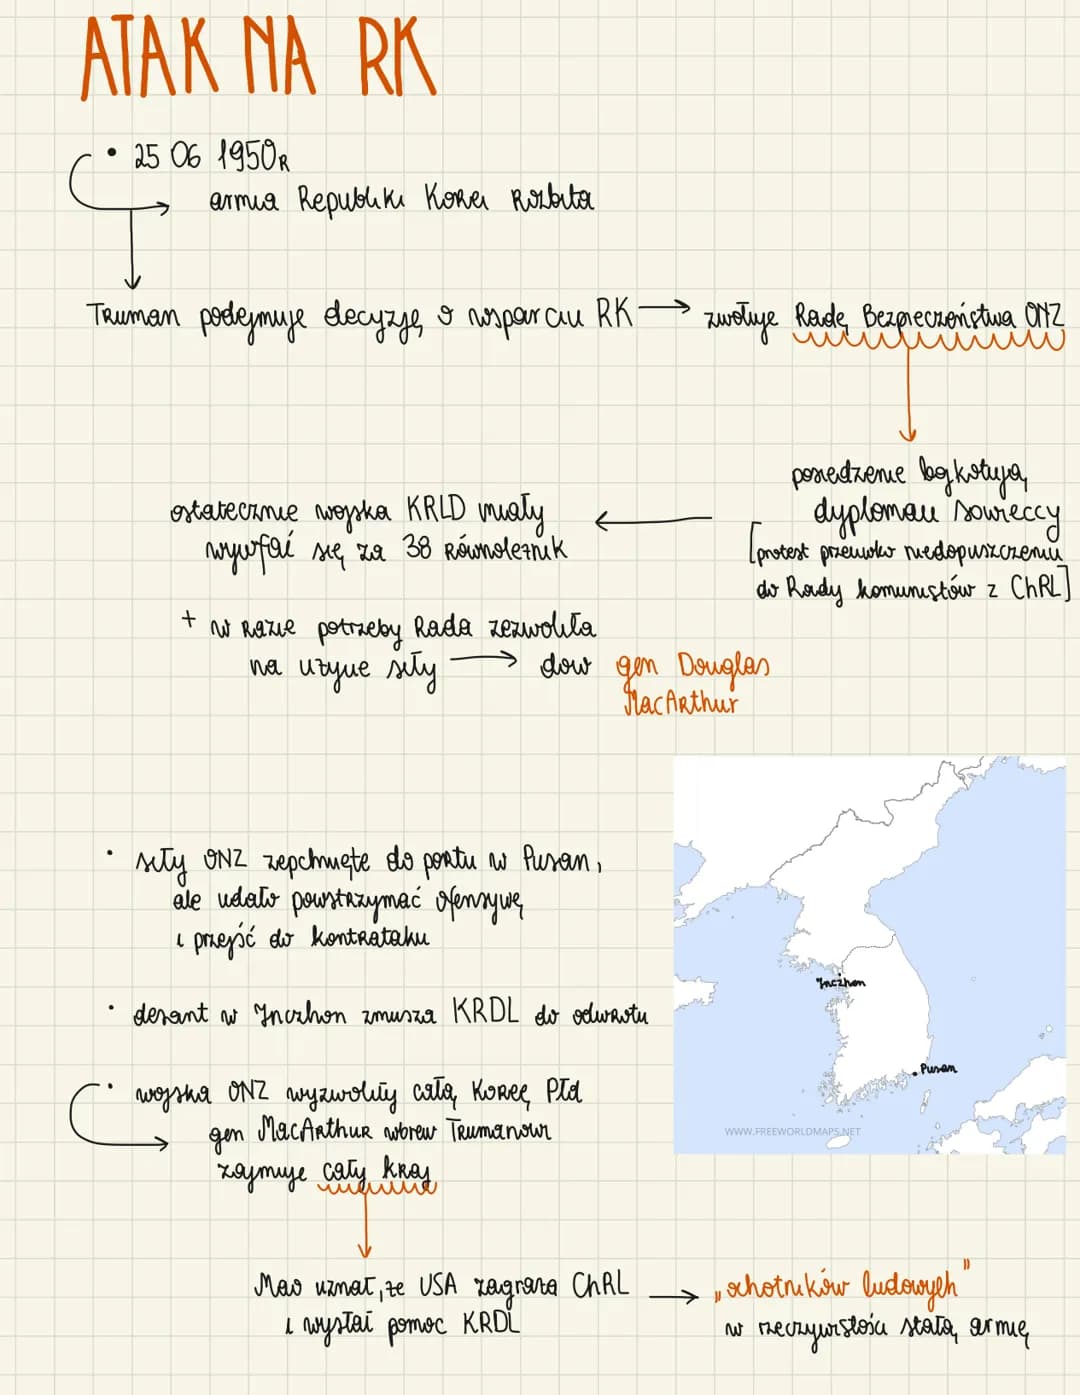 ATAK NA RK
• 25 06 1950R
armia Republiki Korei Rozbita
Truman podejmuje decyzję o wsparciu RK → zwołuje Radę Bezpieczeństwa ONZ
posiedzenie bojkotują
dyplomaci sowieccy
[protest przeciwko niedopuszczeniu
do Rady komunistów z ChRL]
ostatecznie wojska KRLD miały
wycofać się za 38 Równoleżnik
+ w razie potrzeby Rada zezwoliła
na użycie siły → dow gen Douglas
MacArthur
• siły ONZ zepchnięte do portu w Pusan,
ale udało powstrzymać ofensywę
i przejść do kontrataku
• desant w Inczhon zmusza KRDL do odwrotu
• wojska ONZ wyzwoliły całą Koreę Płd
gen MacArthur wbrew Trumanowi
zajmuje cały kraj
Mao uznał, że USA zagraża ChRL → „ochotników ludowych"
i wysłał pomoc KRDL
w rzeczywistości stałą armię
Inczhon
Pusan
WWW.FREEWORLDMAPS.NET